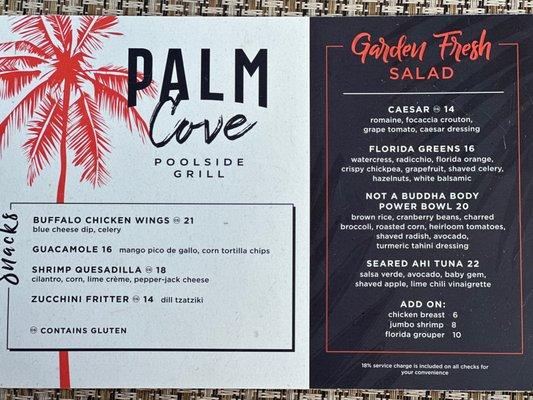 PALM
Cove
POOLSIDE
GRILL
Snacks
BUFFALO CHICKEN WINGS GF 21
blue cheese dip, celery
GUACAMOLE 16 mango pico de gallo, corn tortilla chips
SHRIMP QUESADILLA 18
cilantro, corn, lime crème, pepper-jack cheese
ZUCCHINI FRITTER 14 dill tzatziki
CONTAINS GLUTEN
Garden Fresh
SALAD
CAESAR 14
romaine, focaccia crouton,
grape tomato, caesar dressing
FLORIDA GREENS 16
watercress, radicchio, florida orange,
crispy chickpea, grapefruit, shaved celery,
hazelnuts, white balsamic
NOT A BUDDHA BODY
POWER BOWL 20
brown rice, cranberry beans, charred
broccoli, roasted corn, heirloom tomatoes,
shaved radish, avocado,
turmeric tahini dressing
SEARED AHI TUNA 22
salsa verde, avocado, baby gem,
shaved apple, lime chili vinaigrette
ADD ON:
chicken breast 6
jumbo shrimp 8
florida grouper 10
18% service charge is included on all checks for
your convenience